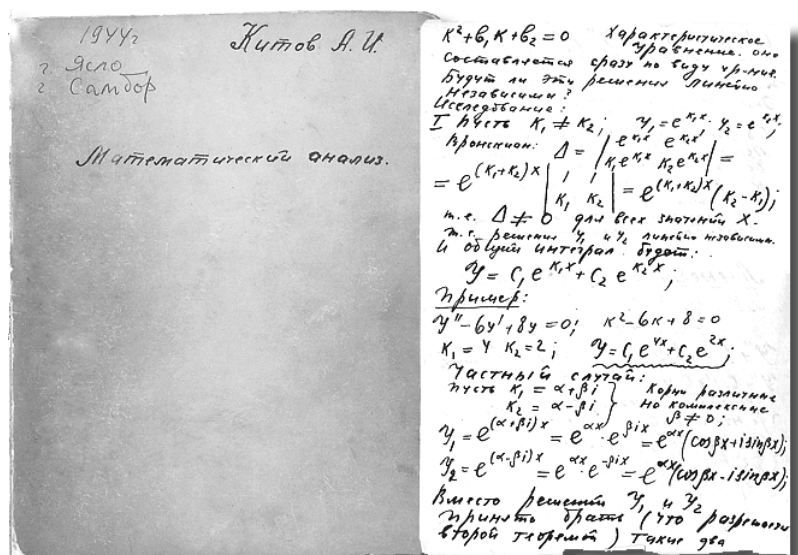 1944г
г. Ясло
г Самбор
Китов А.И.
Математический анализ.
K²+b₁K+b₂=0 Характеристическое
уравнение. оно
составляется сразу по виду ур-ния.
Будут ли эти решения линейно
независимы?
Исследование:
I Пусть K₁≠K₂; y₁=e^{K₁x}; y₂=e^{K₂x};
Вронскиан: Δ = |e^{K₁x} e^{K₂x}; K₁e^{K₁x} K₂e^{K₂x}| =
= e^{(K₁+K₂)x} |1 1; K₁ K₂| = e^{(K₁+K₂)x}(K₂-K₁);
т.е. Δ≠0 для всех значений X.
т.е. решения y₁ и y₂ линейно независимы.
и общий интеграл будет:
y=C₁e^{K₁x}+C₂e^{K₂x};
Пример:
y''-6y'+8y=0; K²-6K+8=0
K₁=4 K₂=2; y=C₁e^{4x}+C₂e^{2x};
Частный случай:
Пусть K₁=α+βi } Корни различные
K₂=α-βi } но комплексные
β≠0;
y₁=e^{(α+βi)x}=e^{αx}·e^{βix}=e^{αx}(cosβx+isinβx);
y₂=e^{(α-βi)x}=e^{αx}·e^{-βix}=e^{αx}(cosβx-isinβx);
Вместо решений y₁ и y₂
принято брать (что разрешости
второй теоремой) такие два